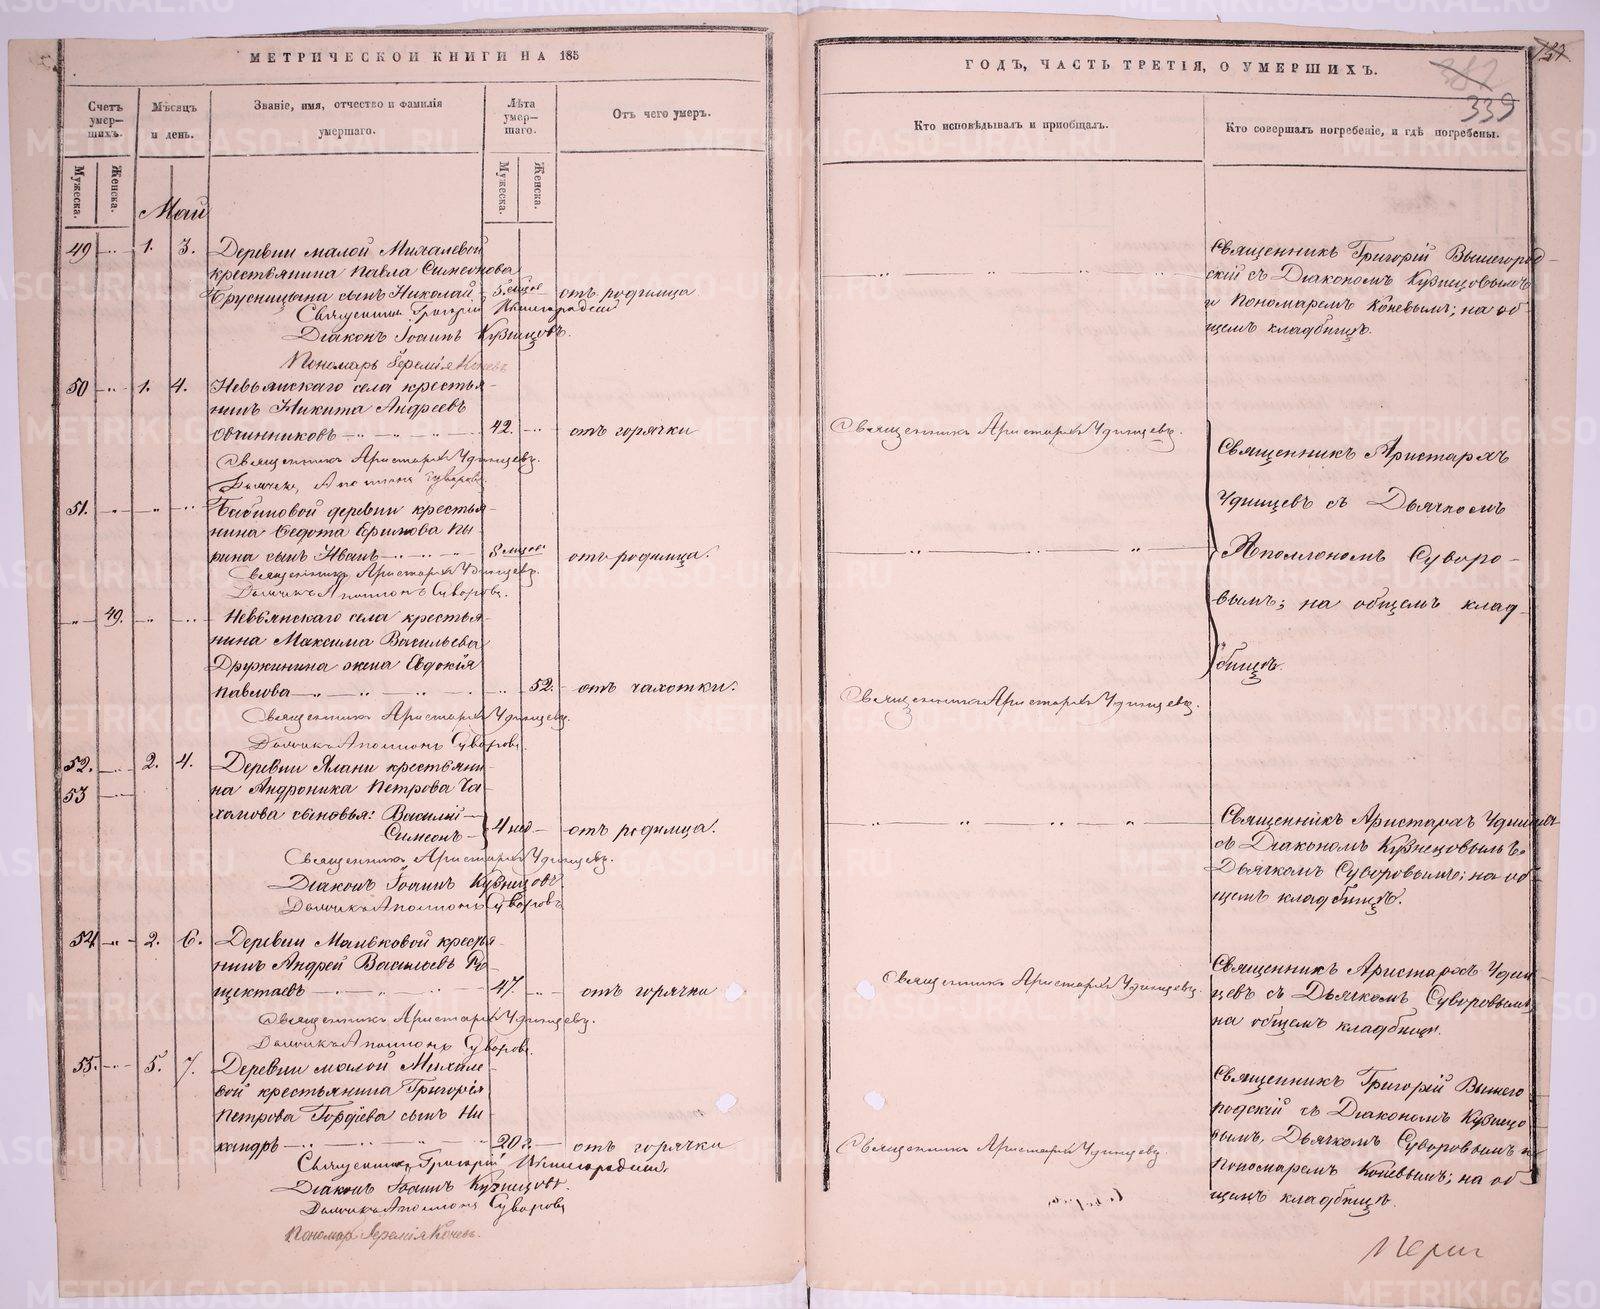 МЕТРИЧЕСКОЙ КНИГИ НА 185
Счетъ умер-шихъ.
Мѣсяцъ и день.
Званіе, имя, отчество и фамилія умершаго.
Лѣта умер-шаго.
Отъ чего умеръ.
Мужеска.
Женска.
Мужеска.
Женска.
Май
49 1. 3. Деревни малой Михалевой
крестьянина Павла Симеонова
Брусницына сынъ Николай отъ родимца
Священникъ Григорій Вышегородскій
Діаконъ Іоаннъ Кузнецовъ.
Пономарь Іеремія Коневъ
50 1. 4. Невьянскаго села крестья-
нинъ Никита Андреевъ
Овчинниковъ 42. отъ горячки
Священникъ Аристархъ Удинцевъ.
Дьячекъ Аполлонъ Суворовъ
51. Бабиновой деревни крестья-
нина Федота Ефимова Пы-
рина сынъ Иванъ отъ родимца.
Священникъ Аристархъ Удинцевъ.
Дьячекъ Аполлонъ Суворовъ.
49. Невьянскаго села крестья-
нина Максима Васильева
Дружинина жена Евдокія
Павлова 52. отъ чахотки.
Священникъ Аристархъ Удинцевъ.
Дьячекъ Аполлонъ Суворовъ.
52. 2. 4. Деревни Ялани крестьяни-
53 на Андроника Петрова
сыновья: Василій
Симеонъ 4 нед отъ родимца.
Священникъ Аристархъ Удинцевъ.
Діаконъ Іоаннъ Кузнецовъ.
Дьячекъ Аполлонъ Суворовъ
54 2. 6. Деревни Мальковой крестья-
нинъ Андрей Васильевъ
47. отъ горячки
Священникъ Аристархъ Удинцевъ.
Дьячекъ Аполлонъ Суворовъ.
55. 5. 7. Деревни малой Михале-
вой крестьянина Григорія
Петрова Гордѣева сынъ Ни-
кандръ 20 г. отъ горячки
Священникъ Григорій Вышегородскій
Діаконъ Іоаннъ Кузнецовъ.
Дьячекъ Аполлонъ Суворовъ
Пономарь Іеремія Коневъ.
ГОДЪ, ЧАСТЬ ТРЕТІЯ, О УМЕРШИХЪ.
339
Кто исповѣдывалъ и пріобщалъ.
Кто совершалъ погребеніе, и гдѣ погребены.
Священникъ Григорій Вышегород-
скій съ Діакономъ Кузнецовымъ
и Пономаремъ Коневымъ; на об-
щемъ кладбищѣ.
Священникъ Аристархъ Удинцевъ.
Священникъ Аристархъ
Удинцевъ съ Дьячкомъ
Аполлономъ Суворо-
вымъ; на общемъ клад-
бищѣ.
Священникъ Аристархъ Удинцевъ.
Священникъ Аристархъ Удинцевъ
съ Діакономъ Кузнецовымъ
Дьячкомъ Суворовымъ; на об-
щемъ кладбищѣ.
Священникъ Аристархъ Удинцевъ.
Священникъ Аристархъ Удин-
цевъ съ Дьячкомъ Суворовымъ
на общемъ кладбищѣ.
Священникъ Аристархъ Удинцевъ.
Священникъ Григорій Вышего-
родскій съ Діакономъ Кузнецо-
вымъ, Дьячкомъ Суворовымъ и
Пономаремъ Коневымъ; на об-
щемъ кладбищѣ.
METRIKI.GASO-URAL.RU